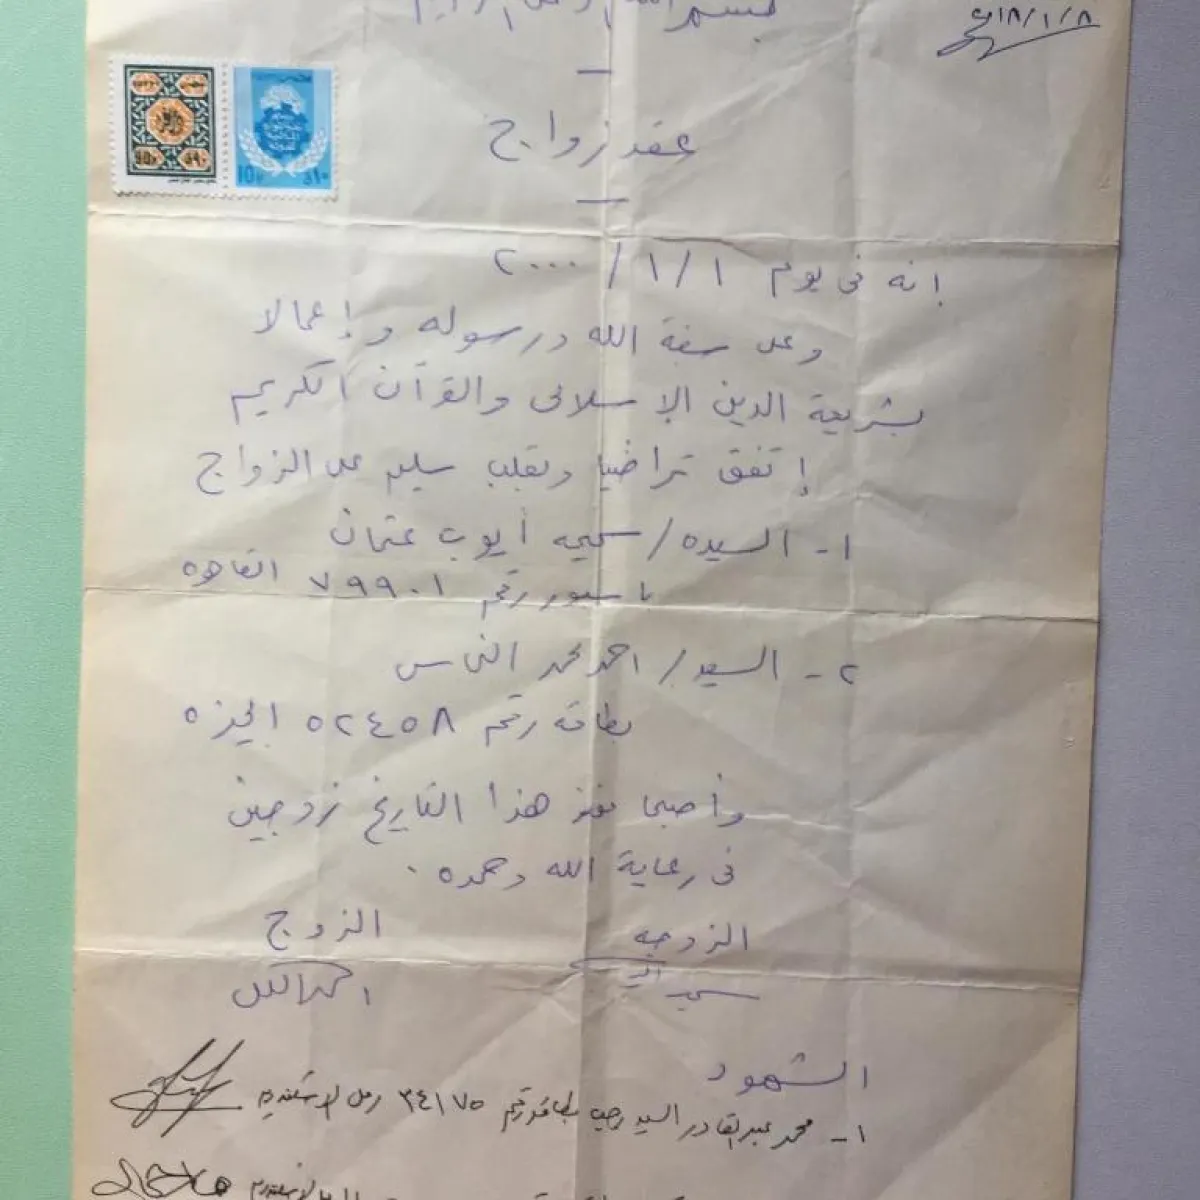 بسم الله الرحمن الرحيم
٢٠١٨/١/٨
عقد زواج
إنه فى يوم ١ / ١ / ٢٠٠٠
وعلى سنة الله ورسوله وإعمالا
بشريعة الدين الإسلامى والقرآن الكريم
إتفق تراضيا وبقلب سليم على الزواج
١- السيده / سميه أيوب عثمان
باسبور رقم ٧٩٩٠١ القاهره
٢- السيد / احمد محمد النحاس
بطاقه رقم ٥٢٤٥٨ الجيزه
وأصبحا منذ هذا التاريخ زوجين
فى رعاية الله وحمده .
الزوجه
الزوج
الشهود
١- محمد عبد القادر السيد رجب بطاقه رقم ٣٤١٧٥ رمل الاسكندريه